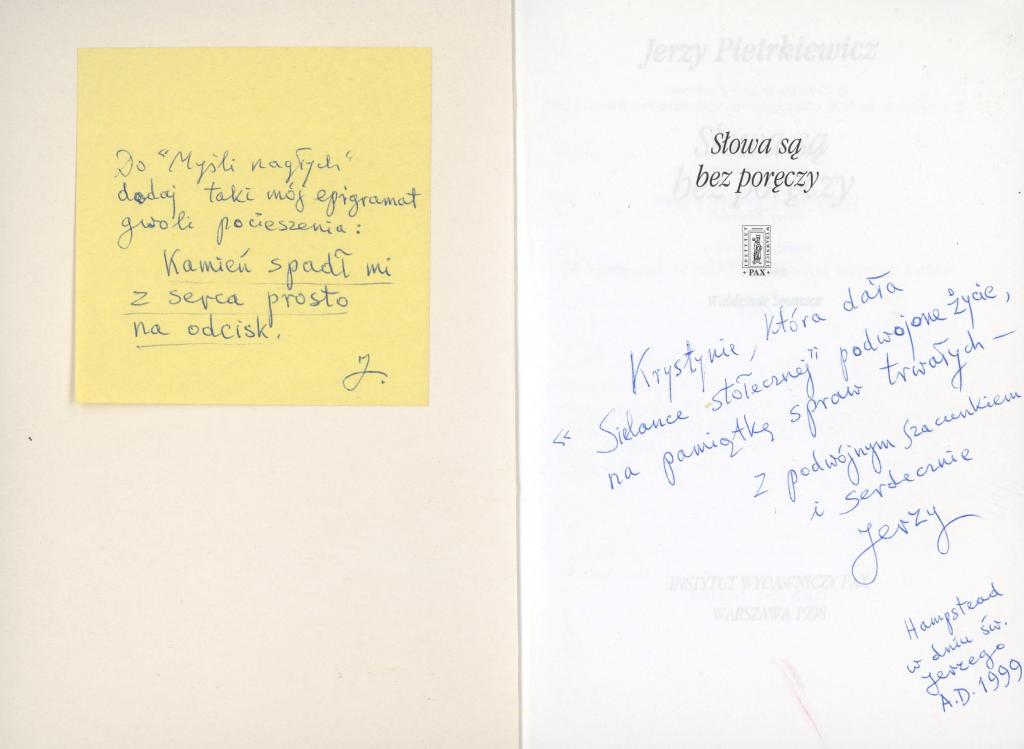 Do "Myśli nagłych"
dodaj taki mój epigramat
gwoli pocieszenia:
Kamień spadł mi
z serca prosto
na odcisk.
J.
Jerzy Pietrkiewicz
Słowa są
bez poręczy
Słowa są
bez poręczy
INSTYTUT
WYDAWNICZY
• PAX •
Krystynie, która dała
"Sielance stołecznej" podwojone życie,
na pamiątkę spraw trwałych —
z podwójnym szacunkiem
i serdecznie
Jerzy
INSTYTUT WYDAWNICZY PAX
WARSZAWA 1998
Hampstead
w dniu św.
Jerzego
A.D. 1999